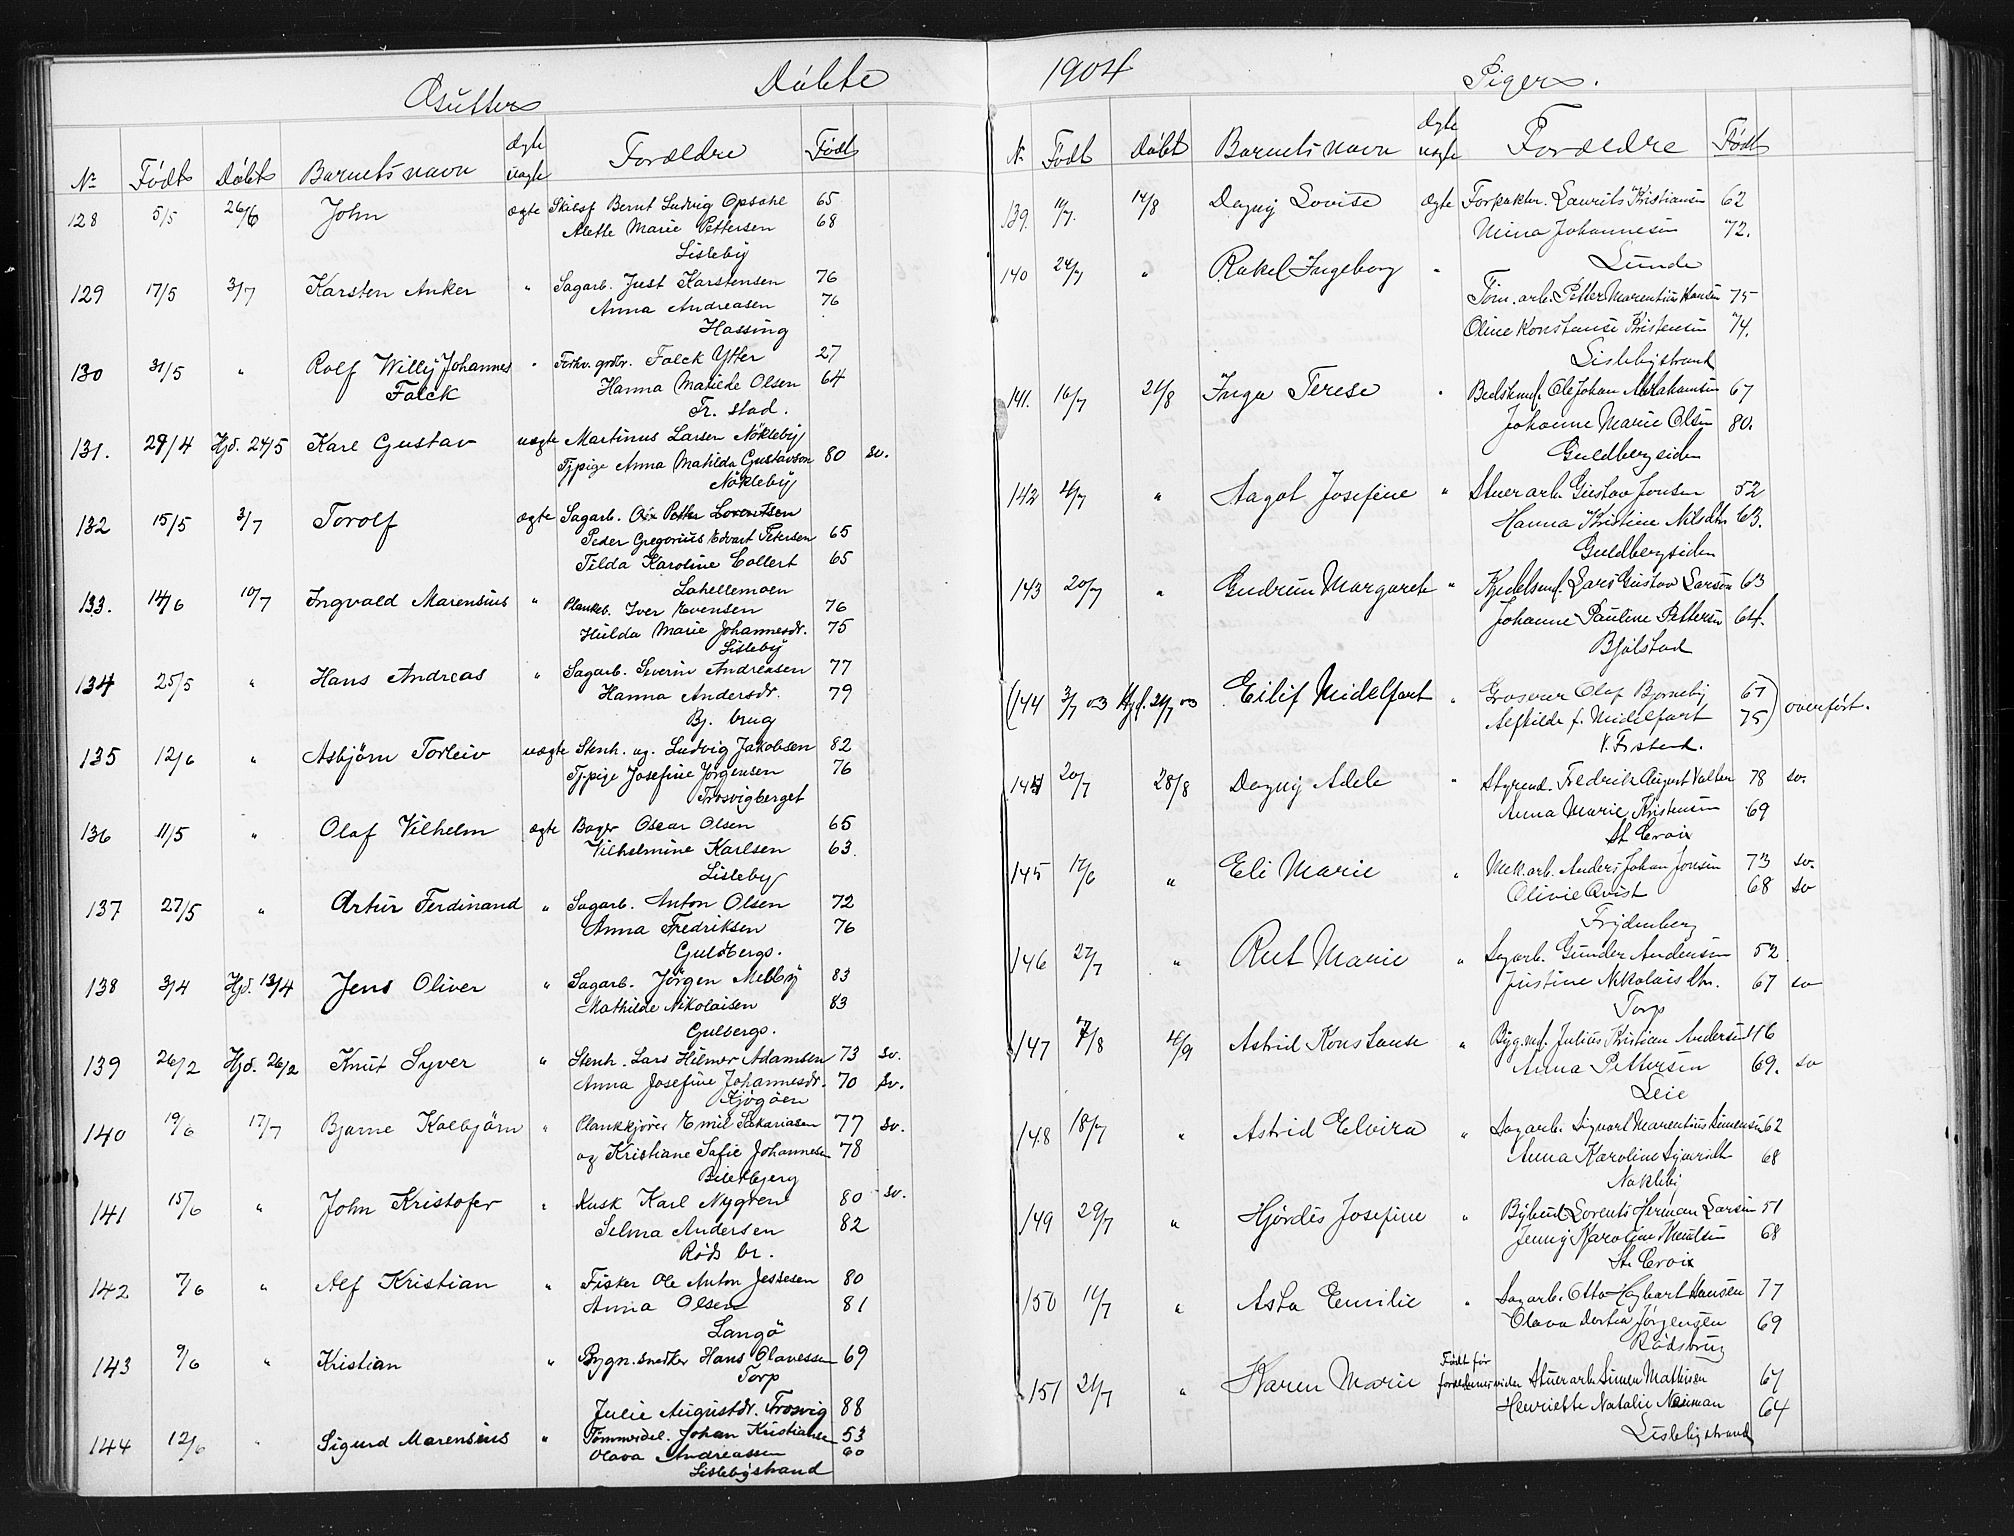 Døbte 1904
Gutter
№ Født Døbt Barnets navn ægte uægte Forældre Født
128 5/5 26/6 John ægte Skibsf. Bernt Ludvig Opsahl 65
Alette Marie Pettersen 68
Lisleby
129 17/5 3/7 Karsten Anker " Sagarb. Just Karstensen 76
Anna Andreasen 76
Hassing
130 31/5 " Rolf Willy Johannes " Falck Ytter 27
Falck Hanna Matilde Olsen 64
Fr. stad.
131. 29/4 Hjd. 24/5 Karl Gustav uægte Martinus Larsen Nökleby
Tjpige Anna Matilda Gustavson 80 sv.
Nökleby
132 15/5 3/7 Torolf ægte Sagarb. Petter Lorentsen
Peder Gregorius Edvart Petersen 65
Tilda Karoline Collert 65
Lahellemoen
133. 14/6 10/7 Ingvald Marensius " Plankeb. Iver Evensen 76
Hulda Marie Johannesdr. 75
Lisleby
134 25/5 " Hans Andreas " Sagarb. Severin Andreasen 77
Hanna Andersdr. 79
Bj. brug
135 12/6 " Asbjörn Torleiv uægte Stenh. ug. Ludvig Jakobsen 82
Tj.pige Josefine Jörgensen 76
Trosvigberget
136 11/5 " Olaf Vilhelm ægte Bager Oscar Olsen 65
Vilhelmine Karlsen 63.
Lisleby
137 27/5 " Artur Ferdinand " Sagarb. Anton Olsen 72
Anna Fredriksen 76
Guldbergs.
138 3/4 Hjd. 13/4 Jens Oliver " Sagarb. Jörgen Melby 83
Mathilde Nikolaisen 83
Gulbergs.
139 26/2 Hjd. 26/2 Knut Syver " Stenh. Lars Hilmer Adamsen 73 sv.
Anna Josefine Johannesdr. 70 sv.
Kjögöen
140 19/6 17/7 Bjarne Kolbjörn " Plankkjörer Emil Sakariasen 77 sv.
og Kristiane Sofie Johannesen 78
141 15/6 " John Kristofer " Kusk Karl Nygren 80 sv.
Selma Andersen 82
Röds br.
142 7/6 " Alf Kristian " Fisker Ole Anton Jessesen 80
Anna Olsen 81
Langö
143 9/6 " Kristian " Bygn.snedker Hans Olavessen 69
Torp
Julie Augustdr. Trosvig 88
144 12/6 " Sigurd Marensius " Tömmerdel. Johan Kristiansen 53
Olava Andreassen 60
Lislebystrand
Piger.
N. Födt Döbt Barnets navn Ægte uægte Forældre Födt
139. 11/7. 14/8 Dagny Lovise ægte Forpakter. Laurits Kristiansen 62
Mina Johannesen 72.
Lunde
140 24/7 " Rakel Ingeborg "
Töm. arb. Petter Marentius Hansen 75
Oline Konstanse Kristensen 74.
Lislebystrand
141. 16/7 21/8 Inga Terese " Ole Johan Abrahamsen 67
Johanne Marie Olsen 80.
Guldbergsiden
142 " Aagot Josefine " Stuerarb. Gustav Jonsen 52
Hanna Kristine Nilsdtr 63.
Guldbergsiden
143 20/7 " Gudrun Margarete " Kjedelsmd. Lars Gustav Larsen 63
Johanne Pauline Pettersen 64.
Bjölstad
(144 3/7 03 Hjd. 21/7 03 Eilif Midelfart " Grosserer Olaf Bjørneby 67
Alfhilde f. Midelfart 75) overfört.
V. Frstad.
144 20/7 28/8 Dagny Adele " Styrmd. Fredrik August Valter 78 sv.
Anna Marie Kristensen 69
St. Croix
145 12/6 " Eli Marie " Mek.arb. Anders Johan Jonsen 73 sv.
Olivie Qvist 68 sv
Frydenberg
146 27/7 " Rut Marie " Sagarb. Gunder Andersen 52
Justine Nikolais dtr. 67 sv
Torp
147 7/8 4/9 Astrid Konstanse " Byg.sn. Julius Kristian Andersen 76
Anna Pettersen 69. sv
Leie
148 18/7 " Astrid Elvira " Sagarb. Sigvart Marentius Simensen 62
Anna Karoline 68
Nökleby
149 29/7 " Hjördis Josefine " Lorents Herman Larsen 51
Jenny Karoline Knutsen 68
St. Croix
150 11/7 " Asta Emilie " Sagarb. Otto Hagbart Hansen 77
Olava Dortea Jörgensen 69
Rödsbrug
151 21/7 " Karen Marie Födt för Stuerarb. Simen Mathisen 67
Henriette Natalie Neuman 64
Lislebystrand